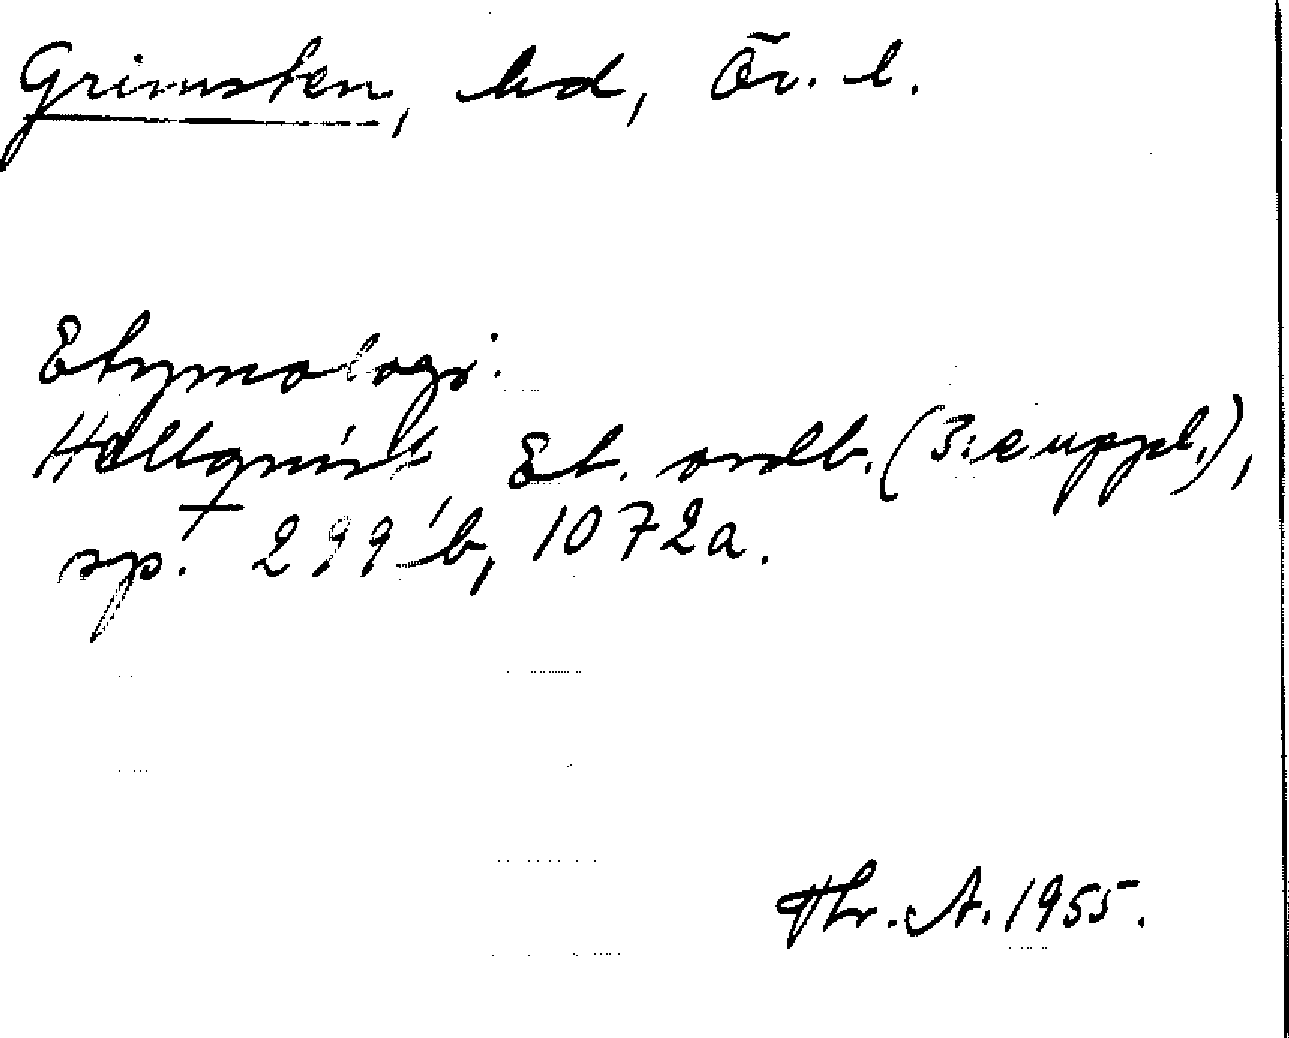 Grimsten, hd, Ör. l.
Etymologi:
Hellquist Et. ordb. (3:e uppl.),
sp. 299 b, 1072a.
Thr. A. 1955.